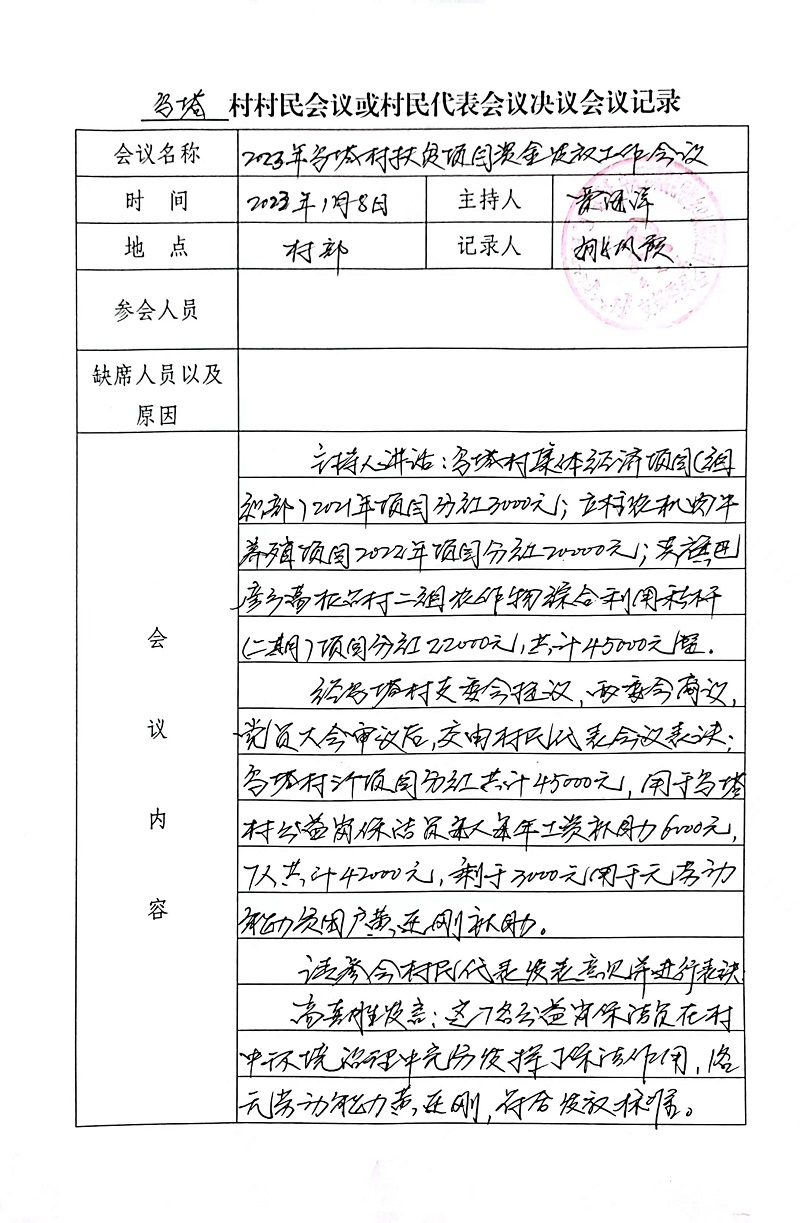 乌塔 村村民会议或村民代表会议决议会议记录
会议名称 2023年乌塔村扶贫项目资金发放工作会议
时 间 2023年1月8日 主持人
地 点 村部 记录人
参会人员
缺席人员以及
原因
会
议
内
容
主持人讲话：乌塔村集体经济项目(组
织部)2021年项目分红3000元；立柱农机肉牛
养殖项目2022年项目分红20000元；
村二组农作物综合利用秸秆
(二期)项目分红22000元，共计45000元整.
经乌塔村支委会提议，两委会商议，
党员大会审议后，交由村民代表会议表决；
乌塔村3个项目分红共计45000元，用于乌塔
村公益岗保洁员每人每年工资补助6000元，
7人共计42000元，剩于3000元用于无劳动
能力贫困户黄连刚补助。
请参会村民代表发表意见并进行表决
发言：这7名公益岗保洁员在村
中环境治理中充分发挥了保洁作用，
无劳动能力黄连刚，符合发放标准。